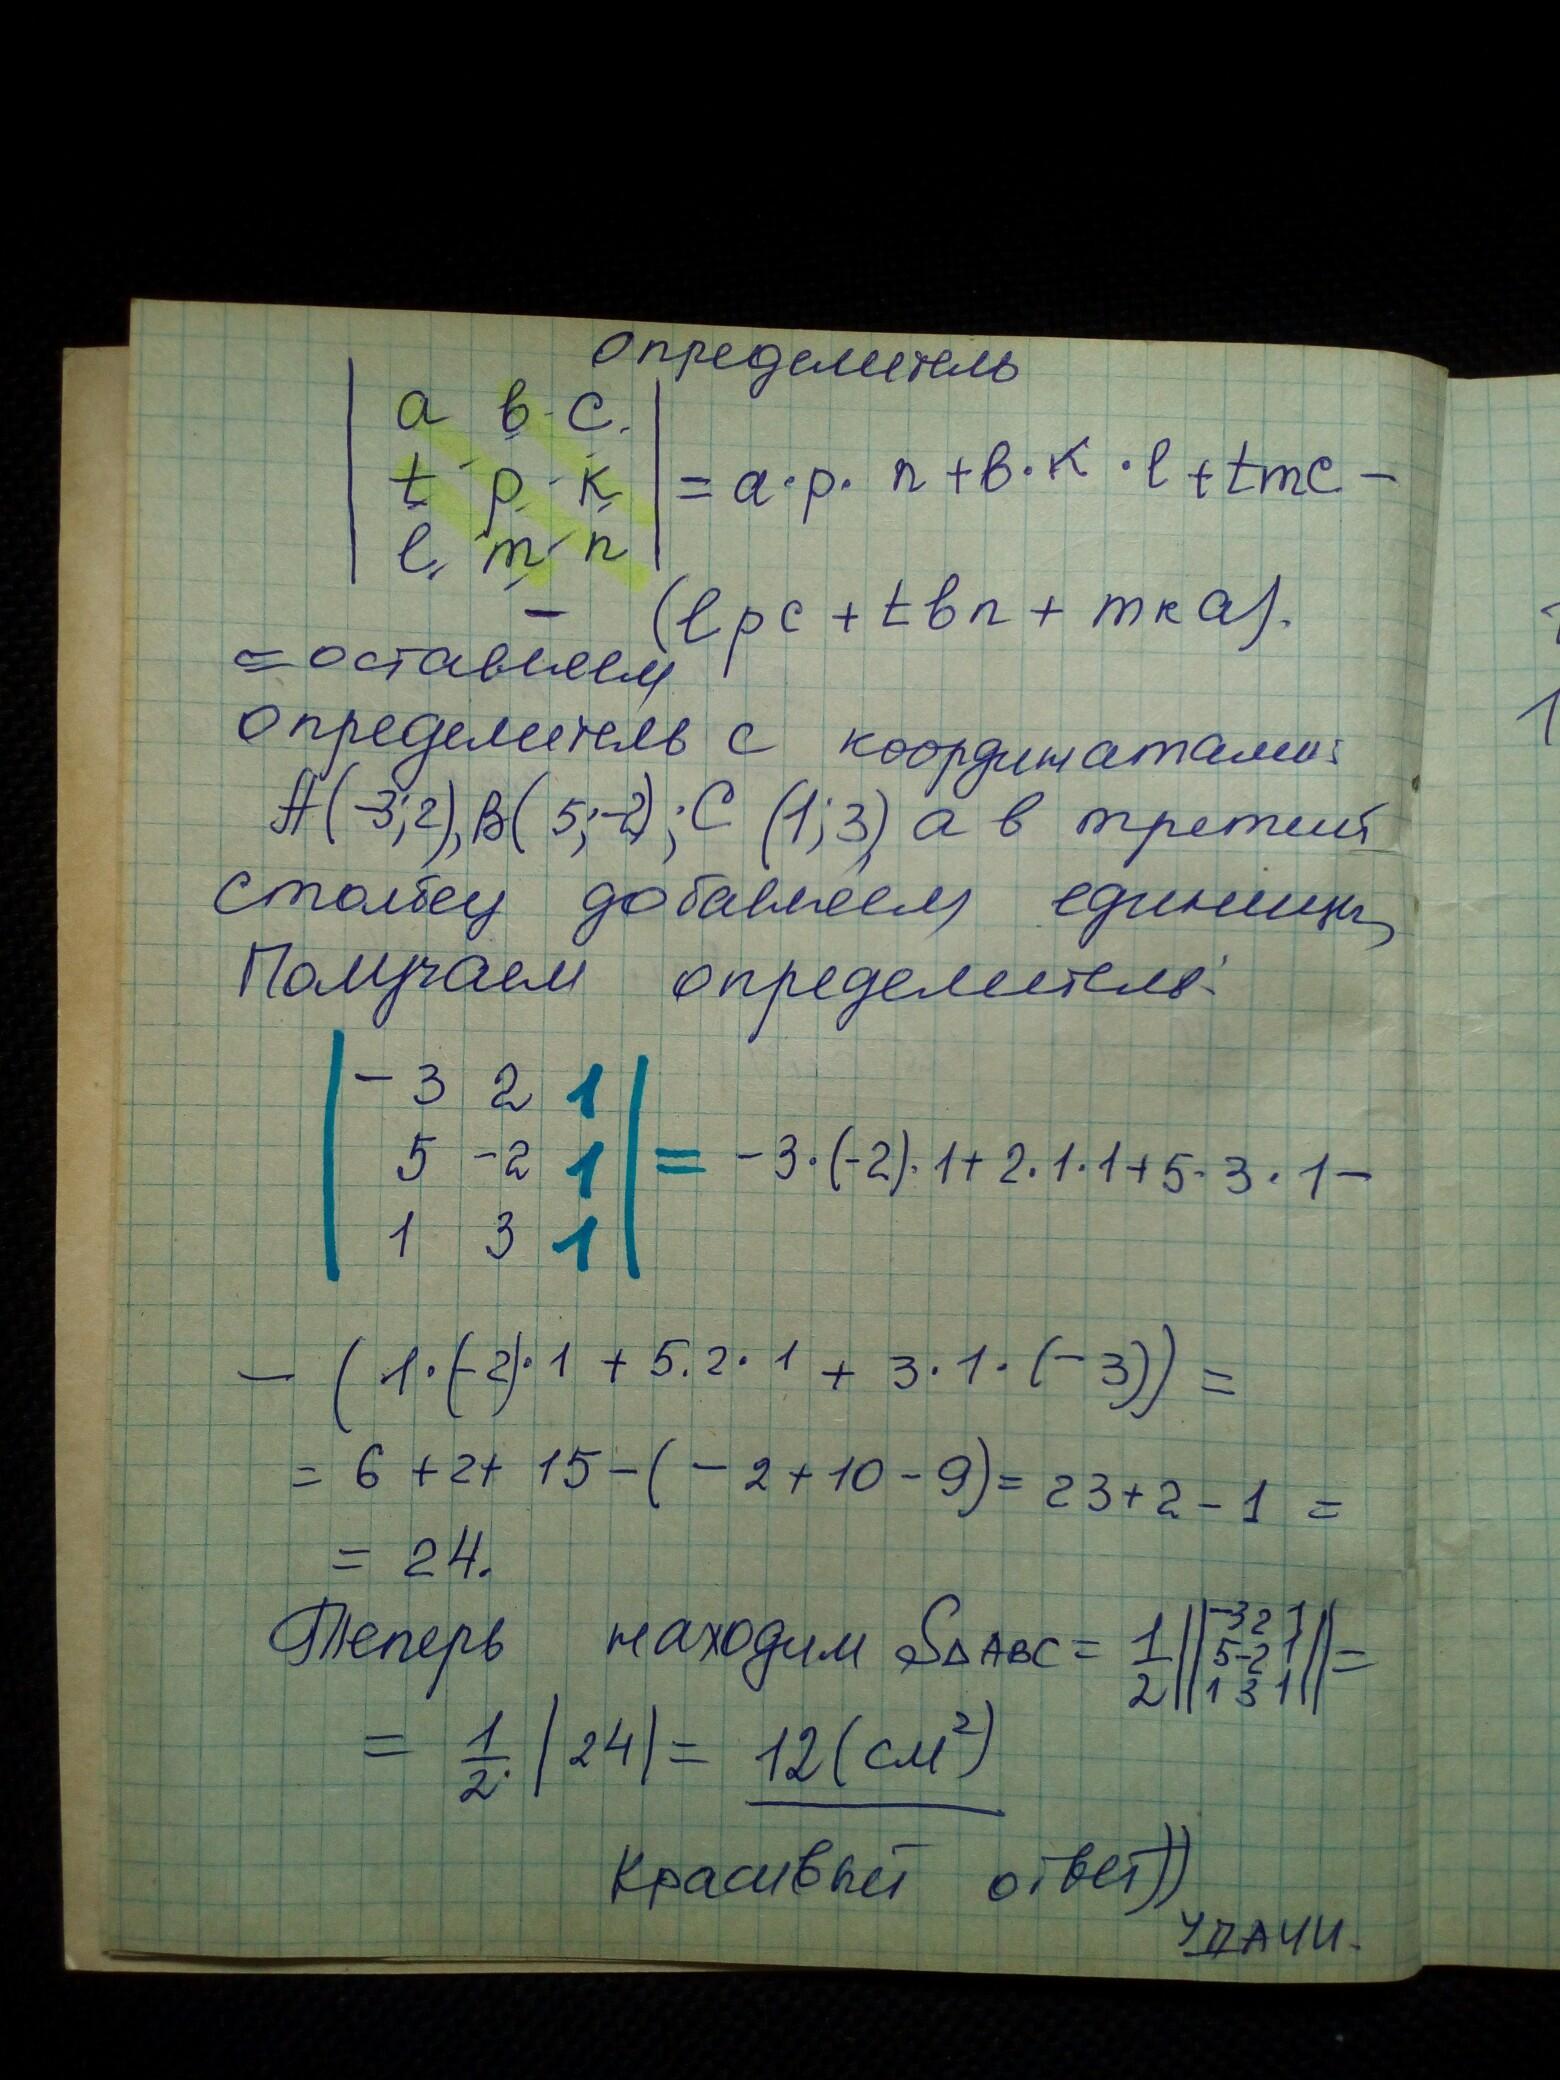 определитель
| a в c |
| t p к | = a·p·n+в·к·l+tmc−
| l m n |
− (lpc + tвn + mкa).
= оставляем
определитель с координатами:
A(-3;2), B(5;-2); C(1;3), а в третий
столбец добавляем единицы,
Получаем определитель:
| -3 2 1 |
| 5 -2 1 | = -3·(-2)·1+2·1·1+5·3·1−
| 1 3 1 |
− (1·(-2)·1 + 5·2·1 + 3·1·(-3)) =
= 6+2+15−(−2+10−9)= 23+2−1 =
= 24.
Теперь находим S△ABC = 1/2 ||-3 2 1; 5 -2 1; 1 3 1|| =
= 1/2·|24| = 12 (см²)
Красивый ответ))
УДАЧИ.